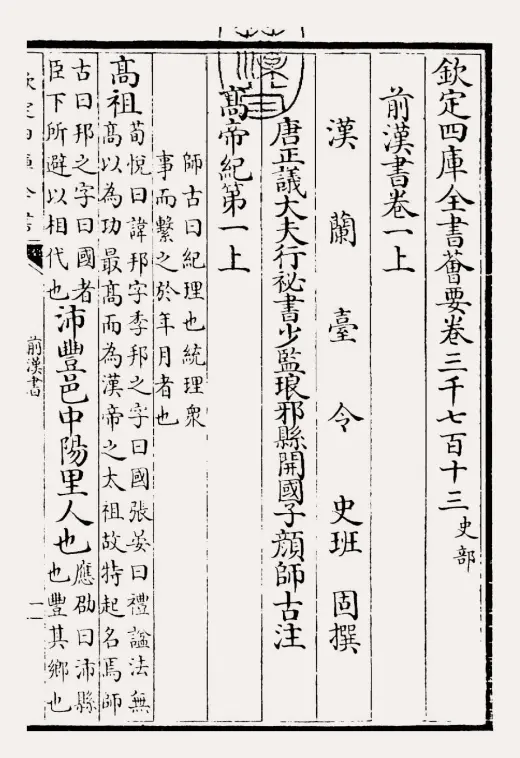 欽定四庫全書薈要卷三千七百十三 史部
前漢書卷一上
漢蘭臺令史班固撰
唐正議大夫行祕書少監琅邪縣開國子顔師古注
髙帝紀第一上
師古曰紀理也統理衆
事而繫之於年月者也
髙祖
荀悅曰諱邦字季邦之字曰國張晏曰禮諡法無
髙以為功最髙而為漢帝之太祖故特起名焉師
古曰邦之字曰國者
臣下所避以相代也
沛豐邑中陽里人也
應劭曰沛縣
也豐其鄉也
前漢書
一